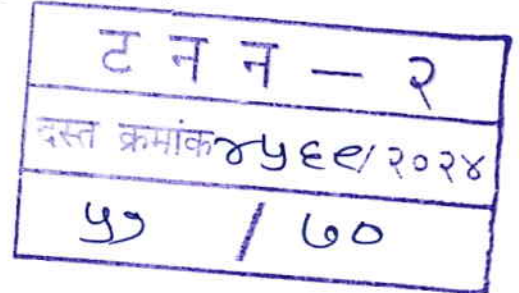 ट न न — २
दस्त क्रमांक ४५६९/२०२४
५१ / ७०